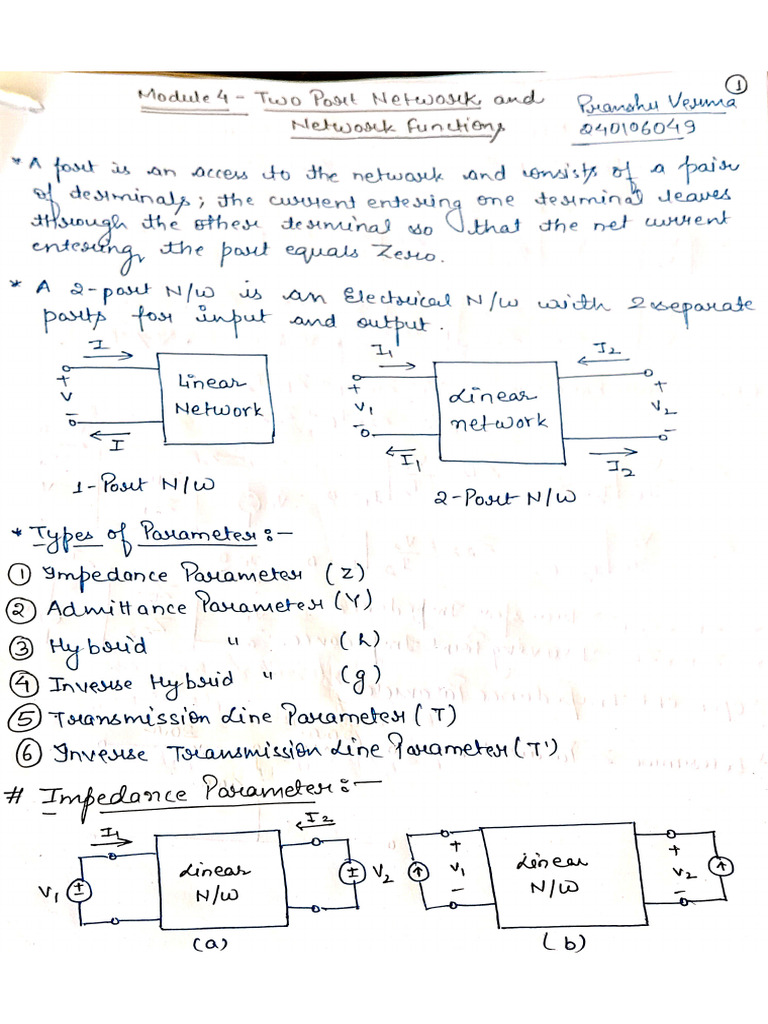 ①
Module 4 - Two Port Network and
Network Functions
Pranshu Verma
240106049
* A port is an access to the network and consists of a pair
of terminals; the current entering one terminal leaves
through the other terminal so that the net current
entering the port equals Zero.
* A 2-port N/W is an Electrical N/W with 2 separate
ports for input and output.
I
+
V
-
I
Linear
Network
1-Port N/W
I1
+
V1
-
I1
Linear
network
I2
+
V2
-
I2
2-Port N/W
* Types of Parameter :-
① Impedance Parameter (Z)
② Admittance Parameter (Y)
③ Hybrid " (h)
④ Inverse Hybrid " (g)
⑤ Transmission Line Parameter (T)
⑥ Inverse Transmission Line Parameter (T')
# Impedance Parameter :-
I1
V1
±
Linear
N/W
I2
±
V2
(a)
+
V1
-
Linear
N/W
+
V2
-
(b)